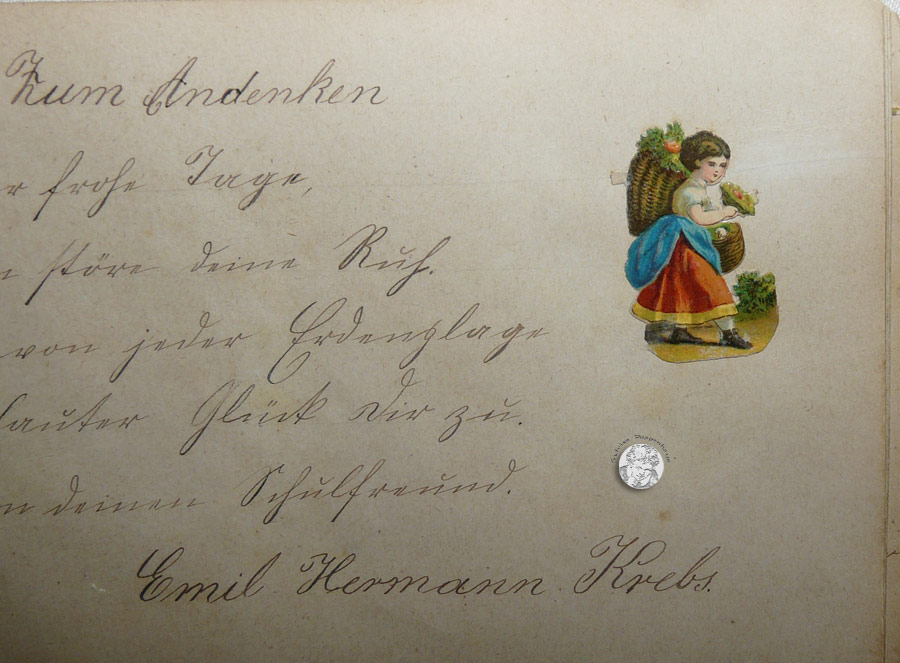 Zum Andenken
r frohe Tage,
n störe deine Ruh.
von jeder Erdenplage
lauter Glück Dir zu.
n deinen Schulfreund.
Emil Hermann Krebs.